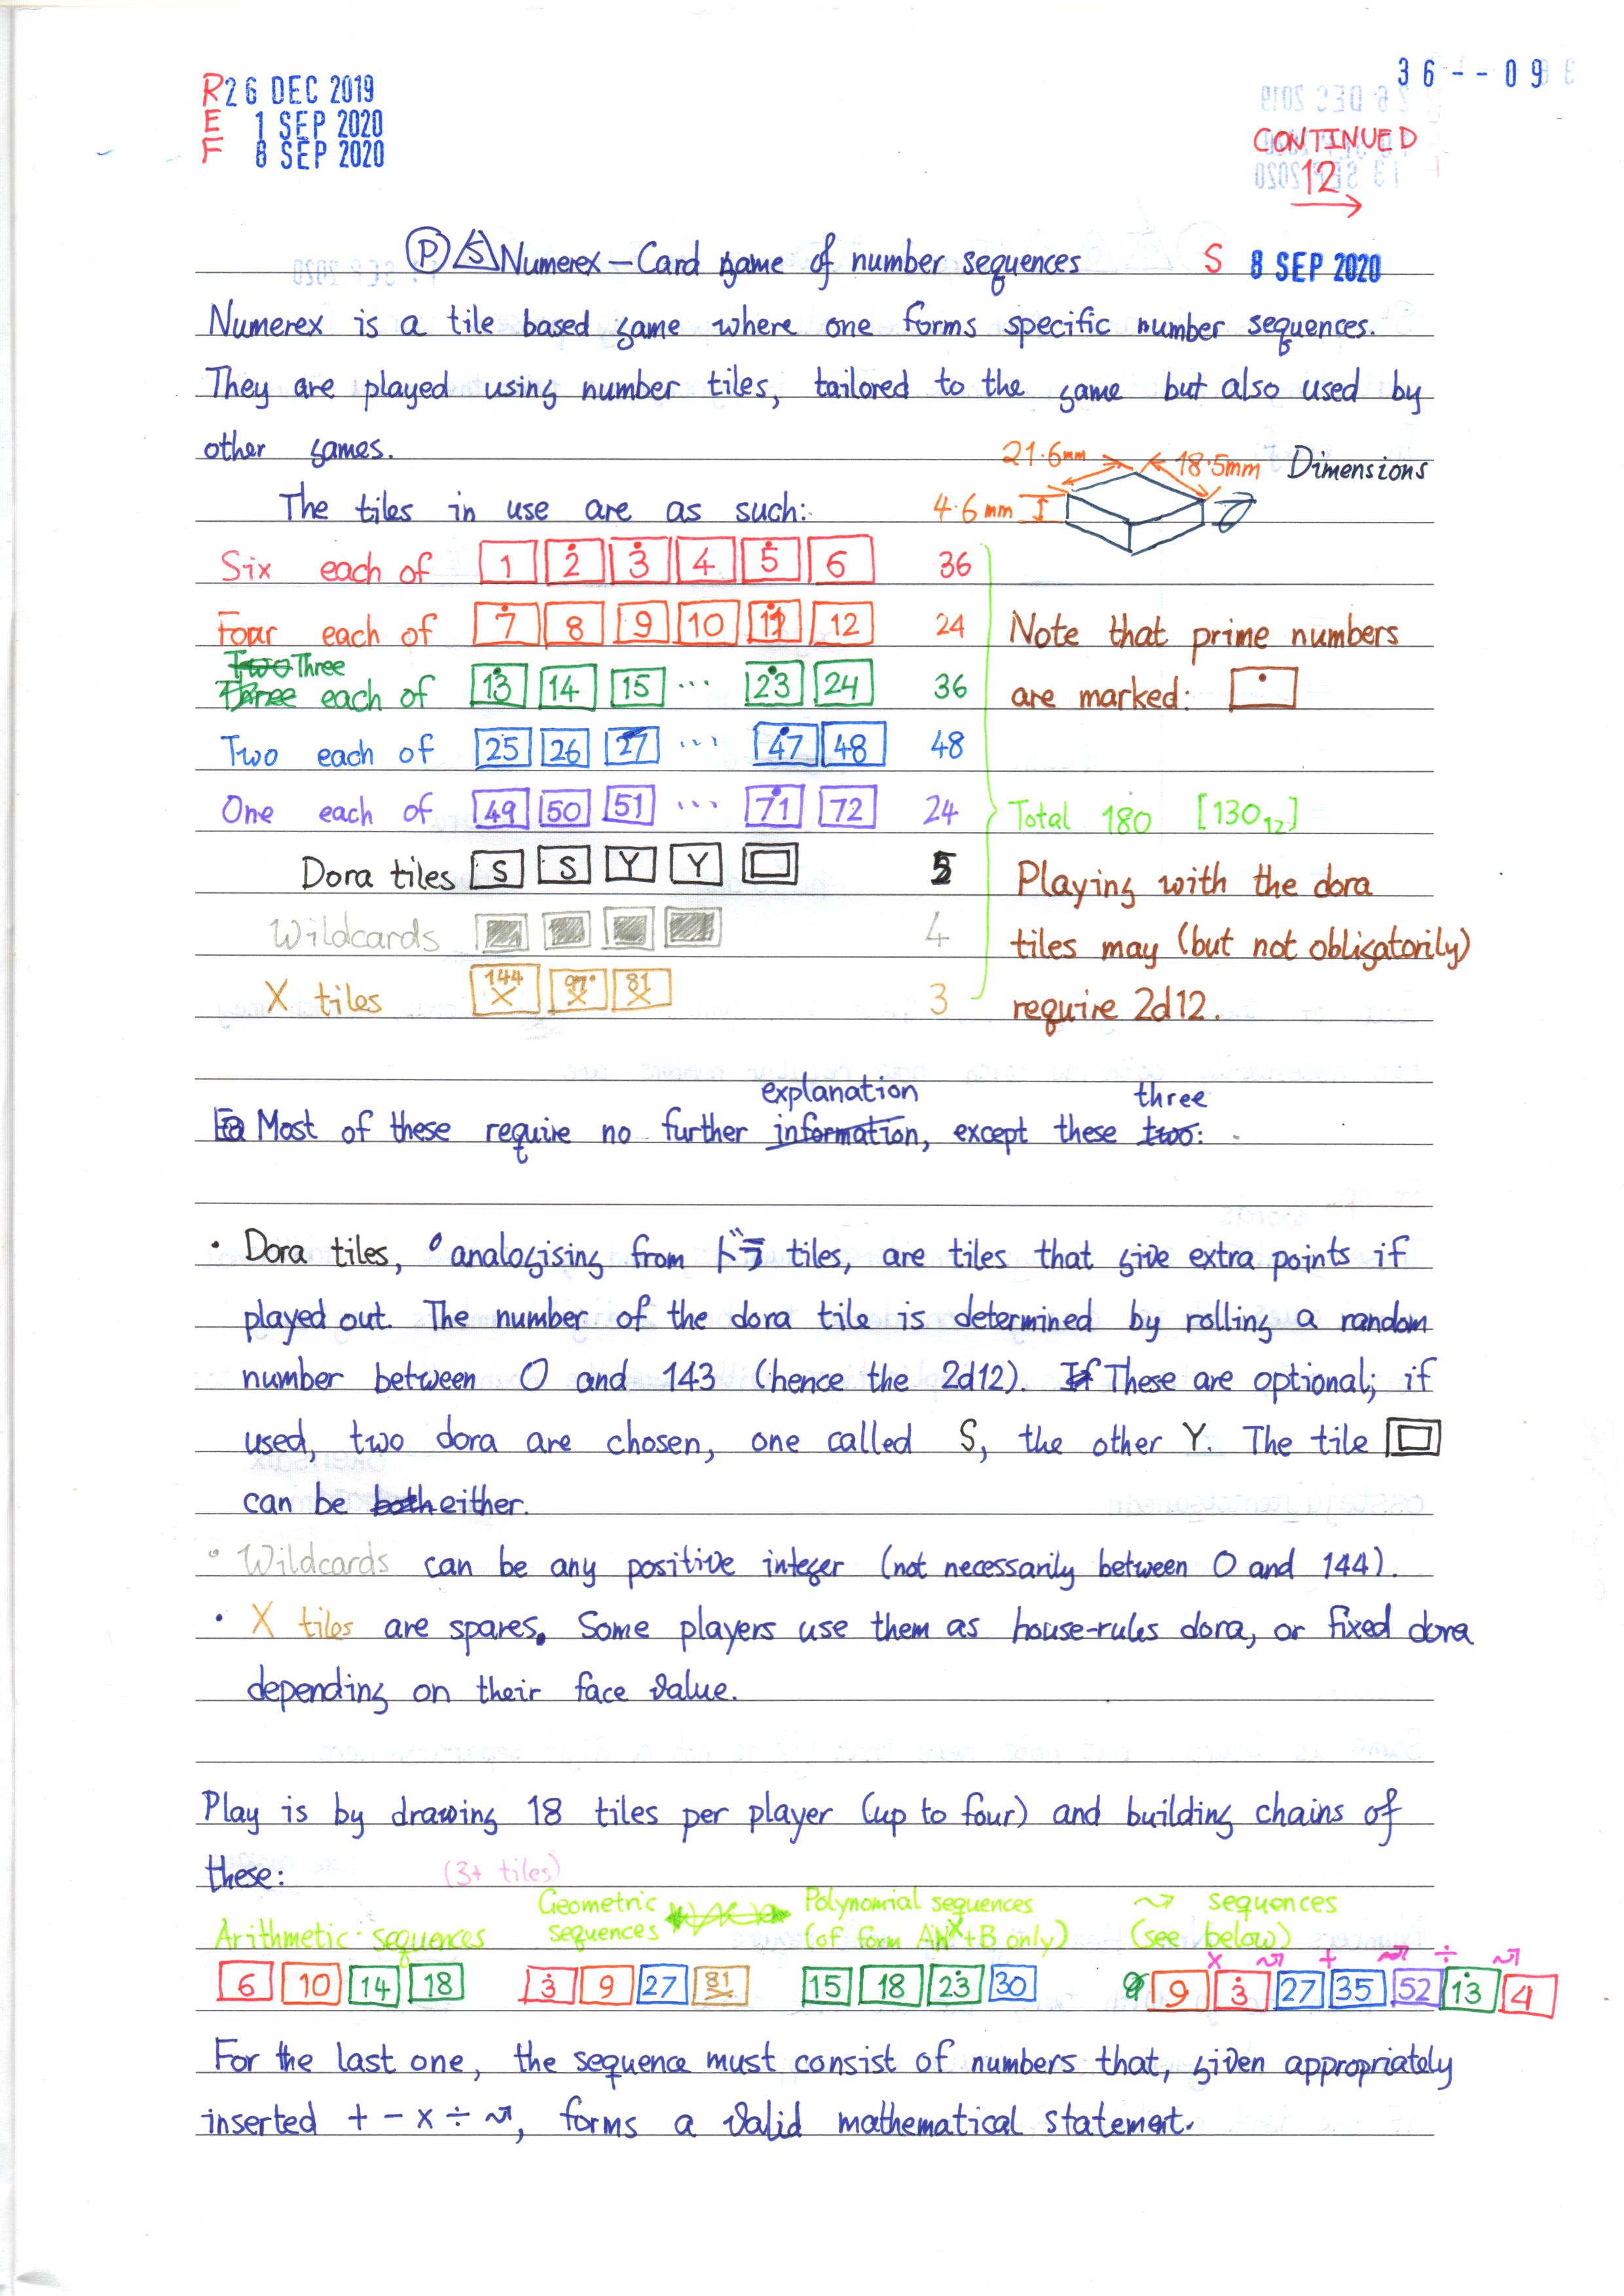 36--09
R 26 DEC 2019
E 1 SEP 2020
F 8 SEP 2020
CONTINUED
12
Ⓟ Numerex – Card game of number sequences S 8 SEP 2020
Numerex is a tile based game where one forms specific number sequences.
They are played using number tiles, tailored to the game but also used by
other games.
21.6mm 18.5mm Dimensions
The tiles in use are as such: 4.6mm
Six each of 1 2 3 4 5 6 36
Four each of 7 8 9 10 11 12 24 Note that prime numbers
Two Three
Three each of 13 14 15 ... 23 24 36 are marked:
Two each of 25 26 27 ... 47 48 48
One each of 49 50 51 ... 71 72 24 Total 180 [130₁₂]
Dora tiles S S Y Y 5 Playing with the dora
Wildcards 4 tiles may (but not obligatorily)
X tiles 144 X 97 X 81 X 3 require 2d12.
explanation three
Most of these require no further information, except these two:
• Dora tiles, analogising from ドラ tiles, are tiles that give extra points if
played out. The number of the dora tile is determined by rolling a random
number between 0 and 143 (hence the 2d12). If These are optional; if
used, two dora are chosen, one called S, the other Y. The tile
can be both either.
• Wildcards can be any positive integer (not necessarily between 0 and 144).
• X tiles are spares. Some players use them as house-rules dora, or fixed dora
depending on their face value.
Play is by drawing 18 tiles per player (up to four) and building chains of
these: (3+ tiles)
Geometric Polynomial sequences ⤳ sequences
Arithmetic sequences sequences (of form An^x+B only) (see below)
× ⤳ + ⤳ ÷ ⤳
6 10 14 18 3 9 27 81 15 18 23 30 9 3 27 35 52 13 4
For the last one, the sequence must consist of numbers that, given appropriately
inserted + − × ÷ ⤳, forms a valid mathematical statement.